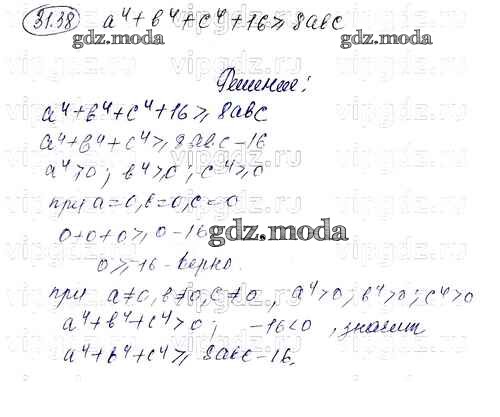 31.38 a⁴+b⁴+c⁴+16≥8abc
gdz.moda
Решение:
a⁴+b⁴+c⁴+16≥8abc
a⁴+b⁴+c⁴≥8abc-16
a⁴≥0; b⁴≥0; c⁴≥0
при a=0, b=0, c=0
0+0+0≥0-16
gdz.moda
0≥-16-верно.
при a≠0, b≠0, c≠0, a⁴>0; b⁴>0; c⁴>0
a⁴+b⁴+c⁴>0; -16<0, значит
a⁴+b⁴+c⁴≥8abc-16.